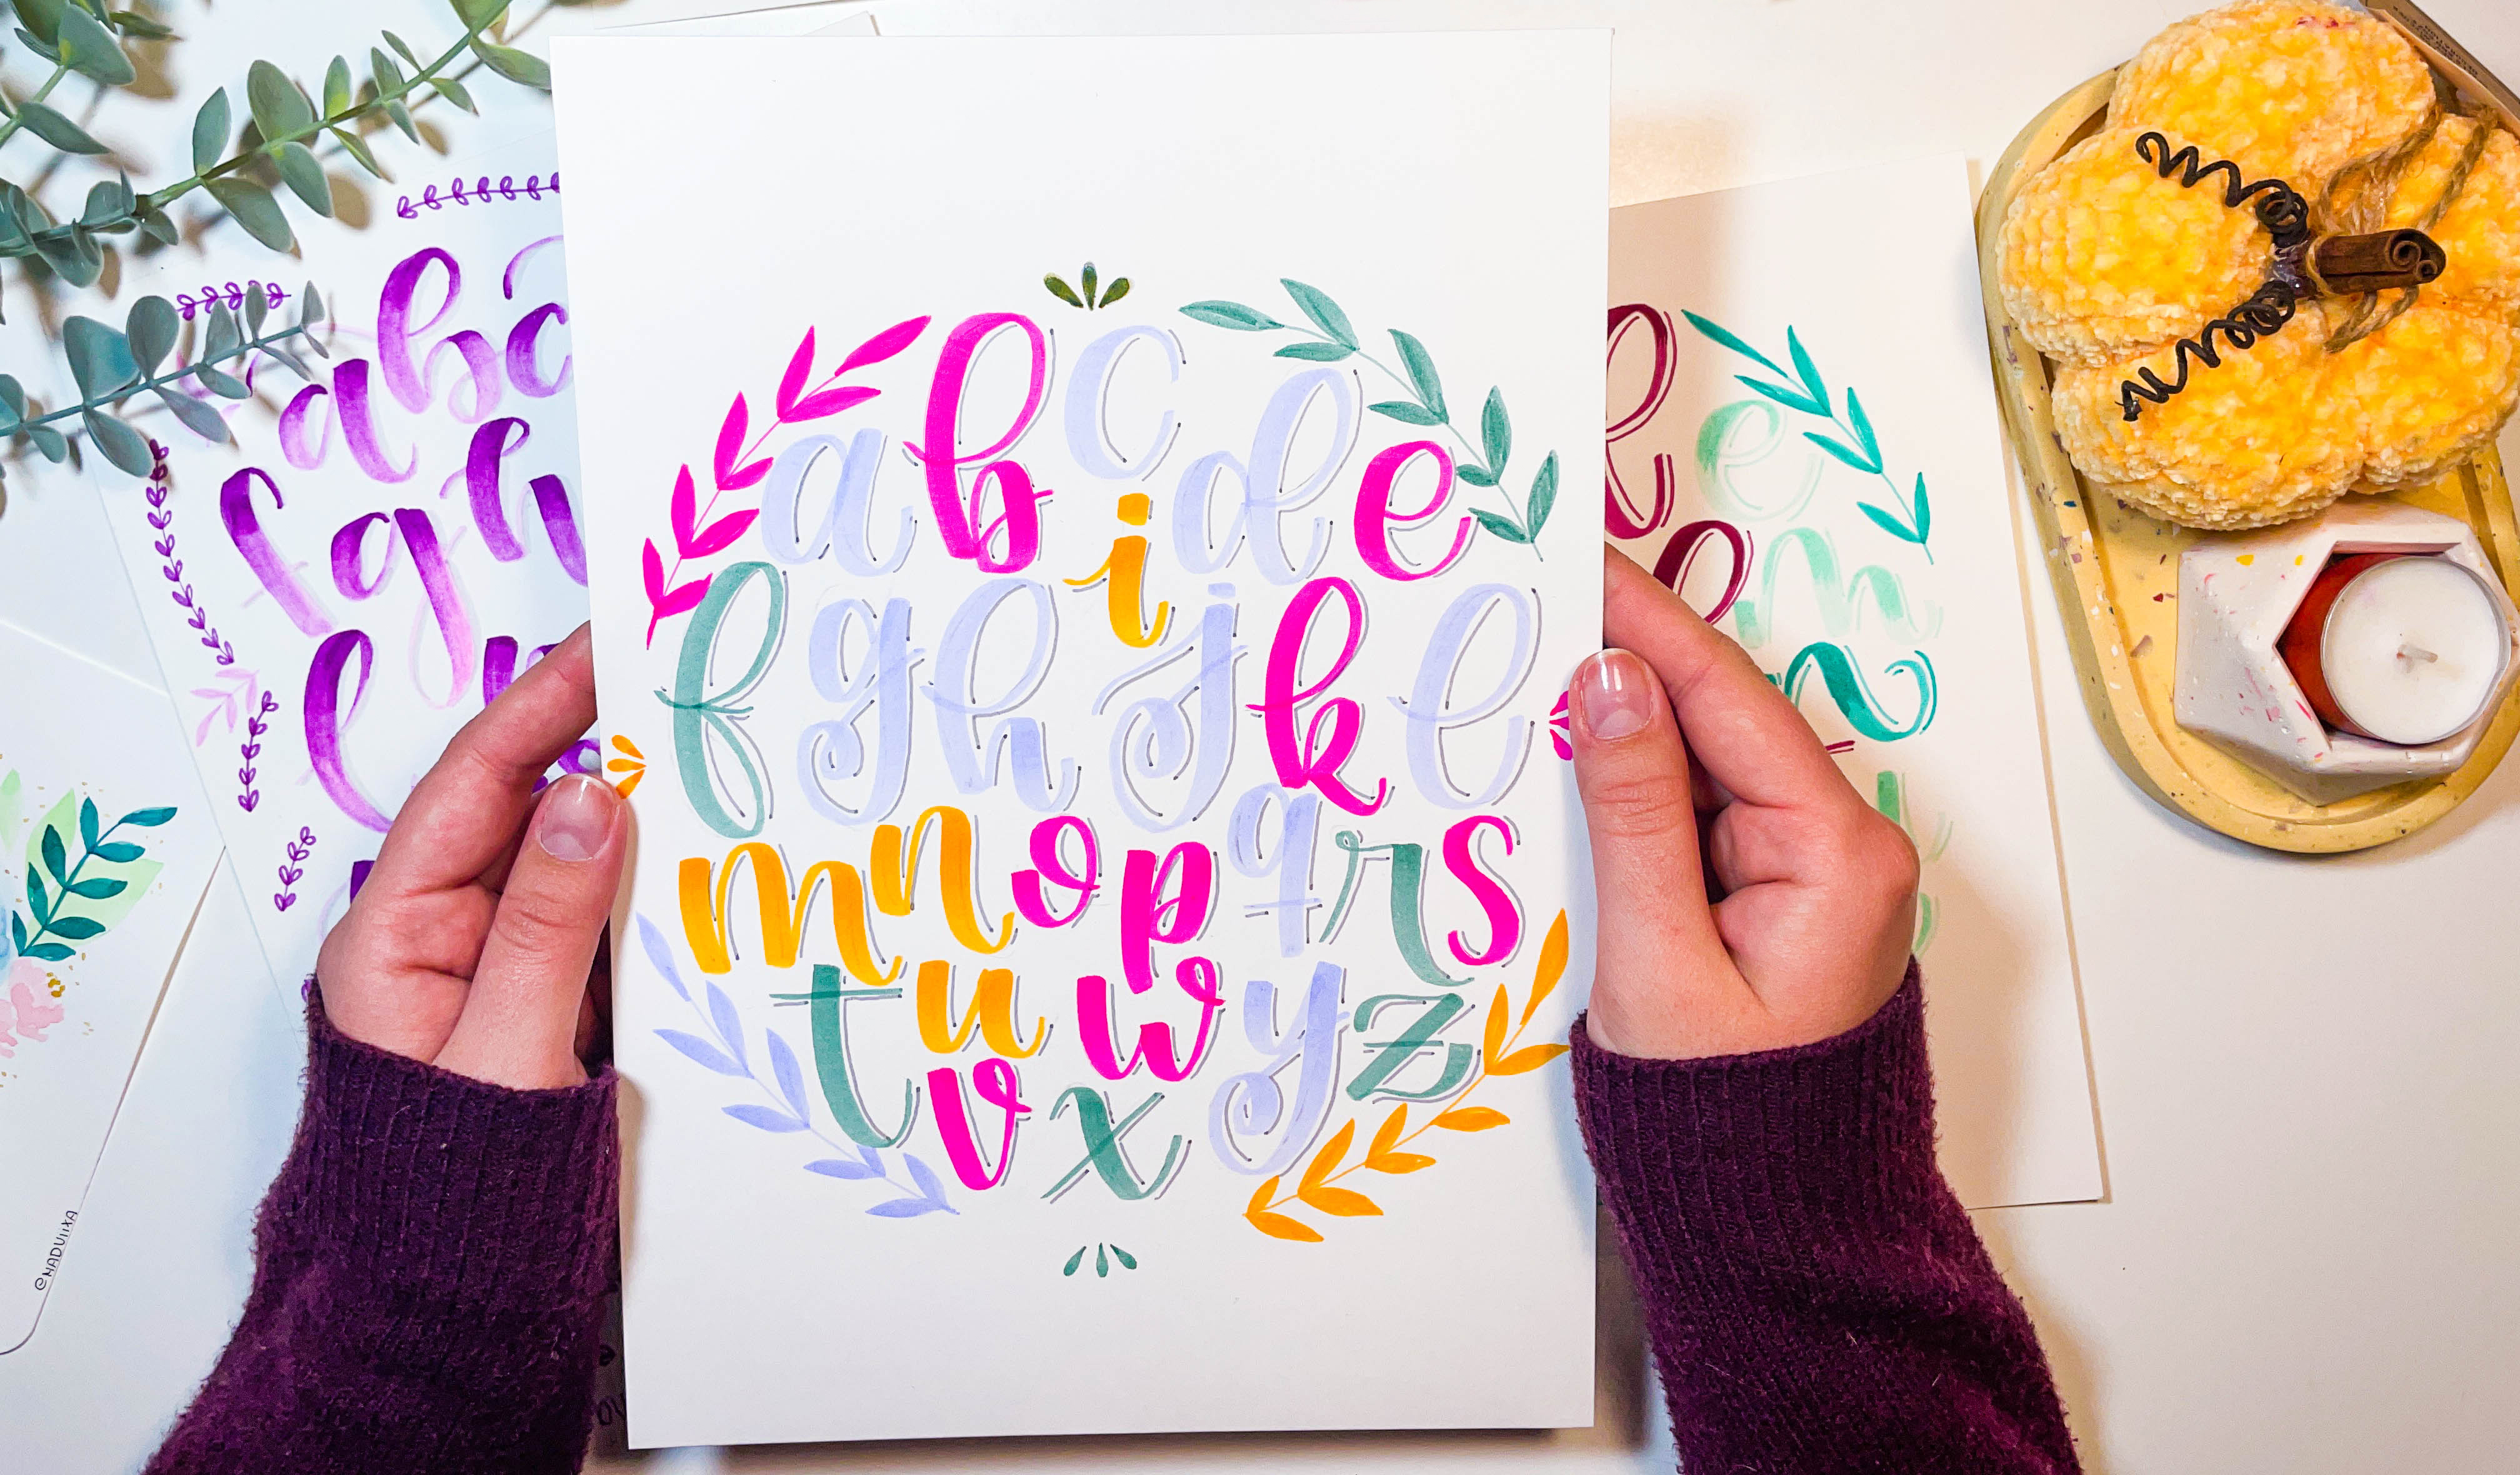 a b c d e
f g h i j k l
m n o p q r s
t u v w x y z
a b c
f g h
l
l e
@NADUIIXA